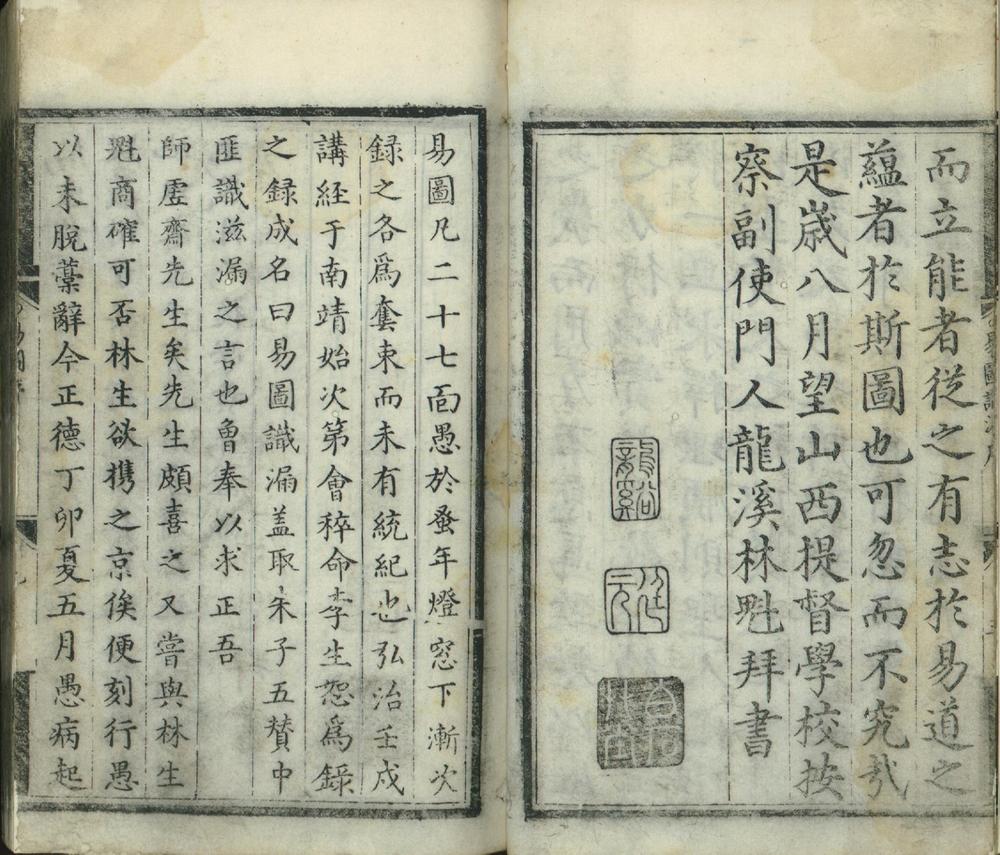 而立能者從之有志於易道之
蘊者於斯圖也可忽而不究㢤
是歲八月望山西提督學校按
察副使門人龍溪林魁拜書
龍谿
易圖凡二十七面愚於蚤年燈窓下漸次
録之各爲奩束而未有統紀也弘治壬戌
講經于南靖始次第會稡命李生恕爲録
之録成名曰易圖識漏盖取朱子五贊中
匪識滋漏之言也魯奉以求正吾
師虛齋先生矣先生頗喜之又嘗與林生
魁商確可否林生欲携之京俟便刻行愚
以未脫藁辭今正德丁卯夏五月愚病起